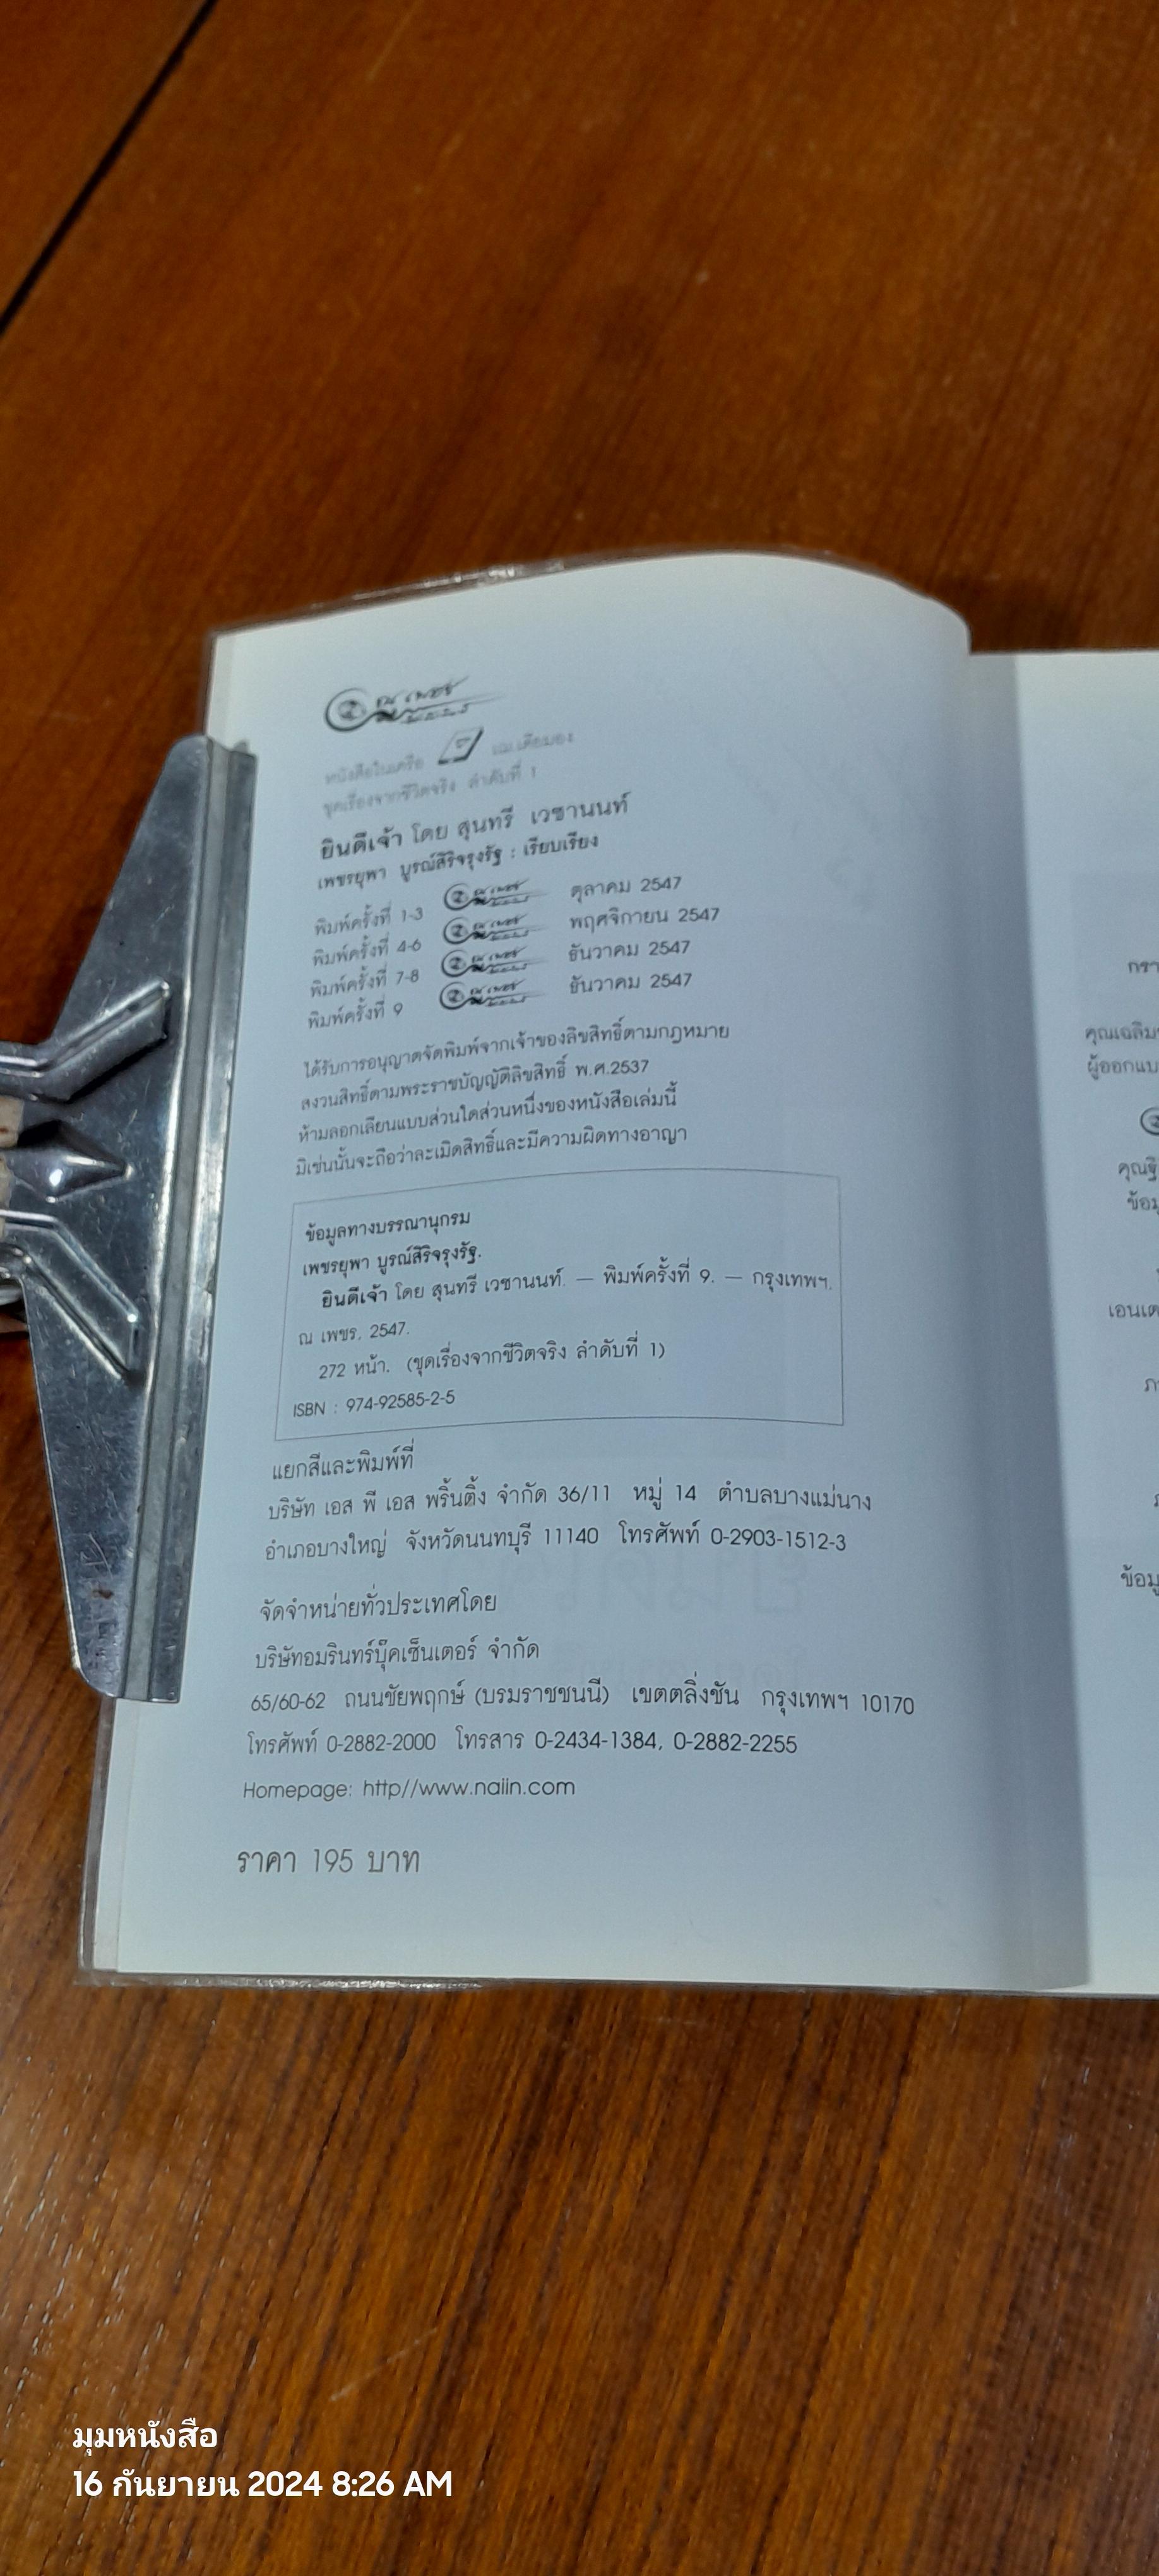 ณ เพชร
หนังสือในเครือ
ชุดเรื่องจากชีวิตจริง ลำดับที่ 1
ยินดีเจ้า โดย สุนทรี เวชานนท์
เพชรยุพา บูรณ์สิริจรุงรัฐ : เรียบเรียง
พิมพ์ครั้งที่ 1-3 ณ เพชร ตุลาคม 2547
พิมพ์ครั้งที่ 4-6 ณ เพชร พฤศจิกายน 2547
พิมพ์ครั้งที่ 7-8 ณ เพชร ธันวาคม 2547
พิมพ์ครั้งที่ 9 ณ เพชร ธันวาคม 2547
ได้รับการอนุญาตจัดพิมพ์จากเจ้าของลิขสิทธิ์ตามกฎหมาย
สงวนสิทธิ์ตามพระราชบัญญัติลิขสิทธิ์ พ.ศ.2537
ห้ามลอกเลียนแบบส่วนใดส่วนหนึ่งของหนังสือเล่มนี้
มิเช่นนั้นจะถือว่าละเมิดสิทธิ์และมีความผิดทางอาญา
ข้อมูลทางบรรณานุกรม
เพชรยุพา บูรณ์สิริจรุงรัฐ.
ยินดีเจ้า โดย สุนทรี เวชานนท์. — พิมพ์ครั้งที่ 9. — กรุงเทพฯ.
ณ เพชร, 2547.
272 หน้า. (ชุดเรื่องจากชีวิตจริง ลำดับที่ 1)
ISBN : 974-92585-2-5
แยกสีและพิมพ์ที่
บริษัท เอส พี เอส พริ้นติ้ง จำกัด 36/11 หมู่ 14 ตำบลบางแม่นาง
อำเภอบางใหญ่ จังหวัดนนทบุรี 11140 โทรศัพท์ 0-2903-1512-3
จัดจำหน่ายทั่วประเทศโดย
บริษัทอมรินทร์บุ๊คเซ็นเตอร์ จำกัด
65/60-62 ถนนชัยพฤกษ์ (บรมราชชนนี) เขตตลิ่งชัน กรุงเทพฯ 10170
โทรศัพท์ 0-2882-2000 โทรสาร 0-2434-1384, 0-2882-2255
Homepage: http//www.naiin.com
ราคา 195 บาท
มุมหนังสือ
16 กันยายน 2024 8:26 AM